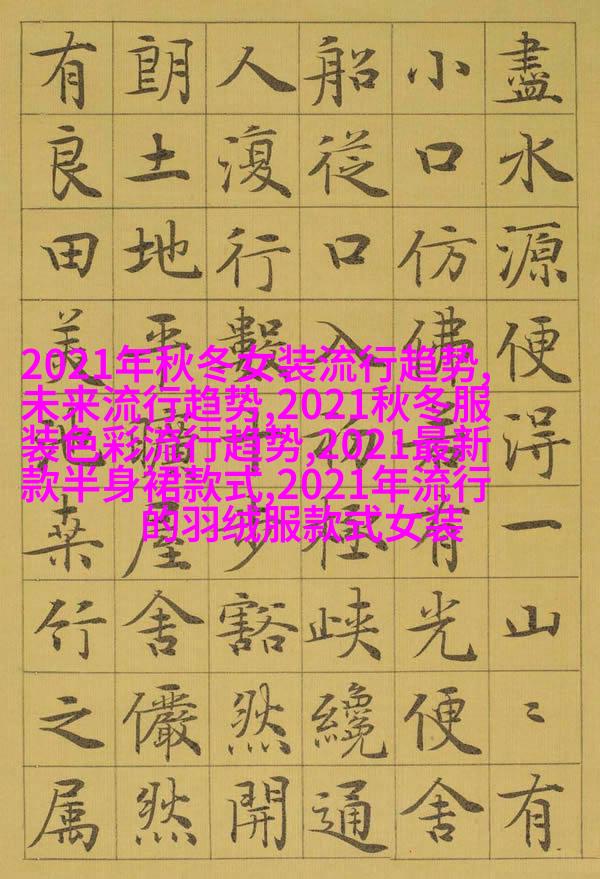 盡水源便得一山〻有
小口仿佛若有光便舍
船從口入初極峽纔通
人復行數十步豁然開
朗土地平曠屋舍儼然
有良田美池桑竹之属
2021年秋冬女装流行趋势,
未来流行趋势,2021秋冬服
装色彩流行趋势,2021最新
款半身裙款式,2021年流行
的羽绒服款式女装